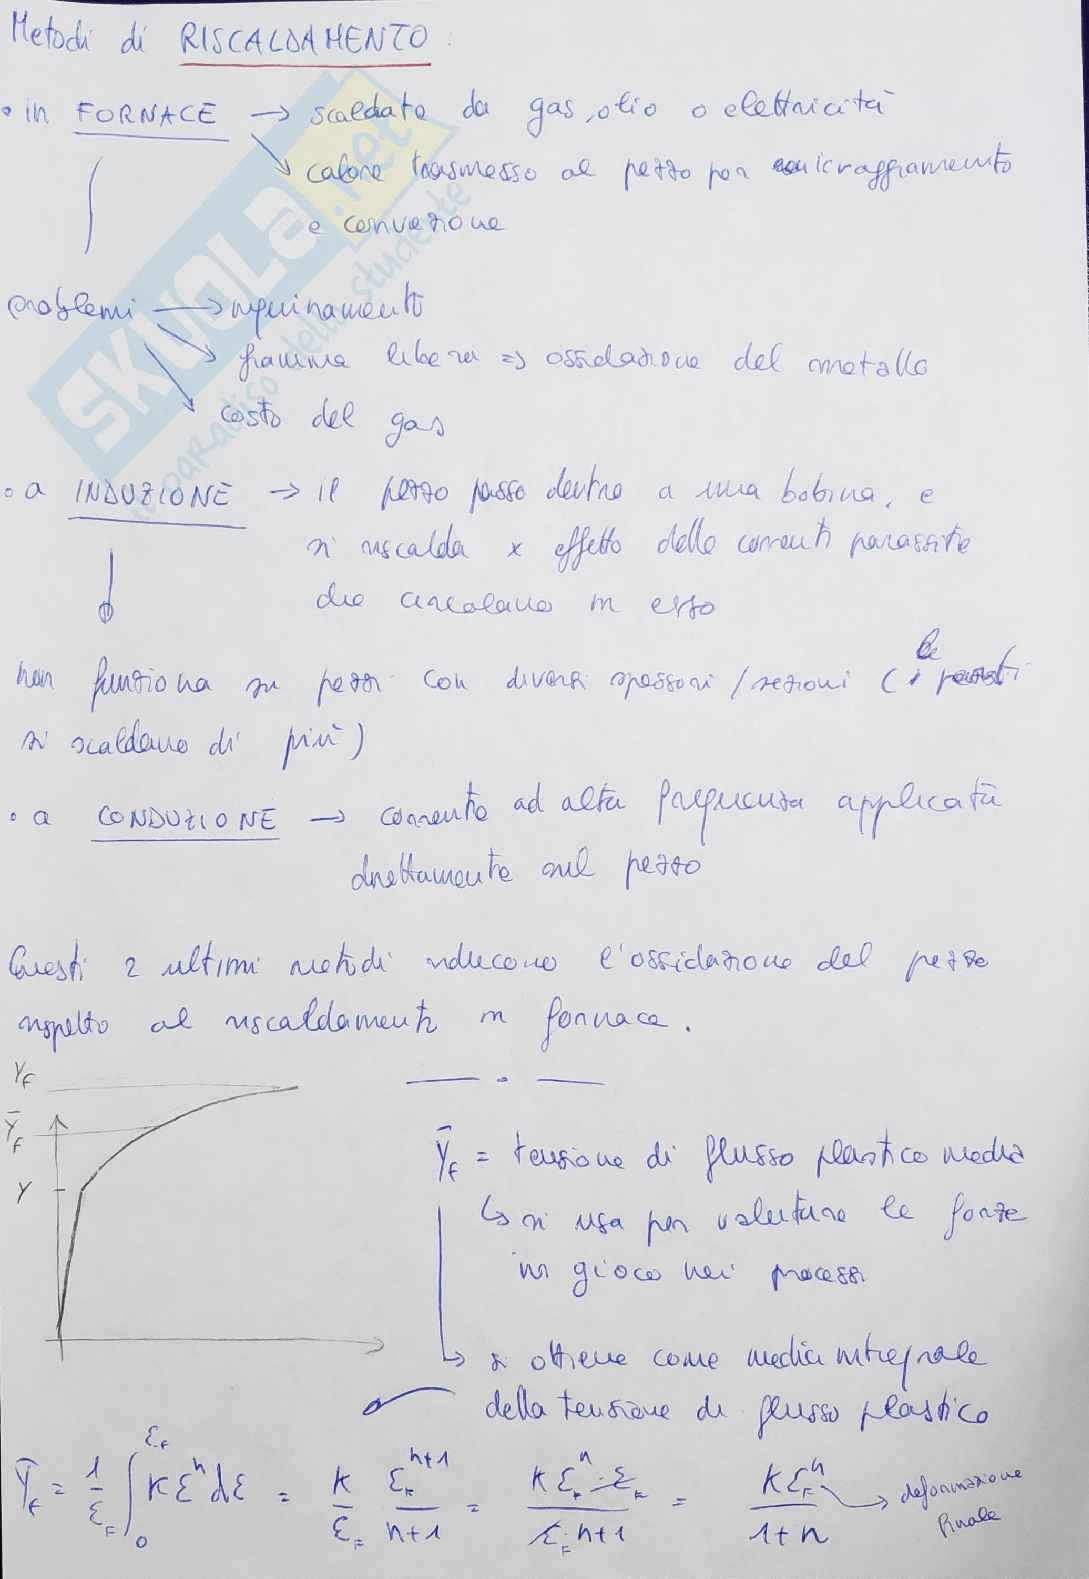 Metodi di RISCALDAMENTO:
• in FORNACE → scaldate da gas, olio o elettricità
↘ calore trasmesso al pezzo per irraggiamento
e convezione
problemi → inquinamento
↘ fiamma libera => ossidazione del metallo
↘ costo del gas
• a INDUZIONE → il pezzo passa dentro a una bobina, e
si riscalda x effetto delle correnti parassite
che circolano in esso
non funziona su pezzi con diversi spessori/sezioni (
si scaldano di più)
• a CONDUZIONE → corrente ad alta frequenza applicata
direttamente sul pezzo
Questi 2 ultimi metodi riducono l'ossidazione del pezzo
rispetto al riscaldamento in fornace.
Y_F
Ȳ_F
Y
Ȳ_F = tensione di flusso plastico media
↳ si usa per valutare le forze
in gioco nei processi
↳ si ottiene come media integrale
della tensione di flusso plastico
Ȳ_F = 1/ε_F ∫₀^ε_F K ε^n dε = K/ε_F ε_F^(n+1)/(n+1) = K ε_F^n · ε_F / ε_F · n+1 = K ε_F^n / 1+n → deformazione
finale
SKUOLA.net
il paradiso dello studente